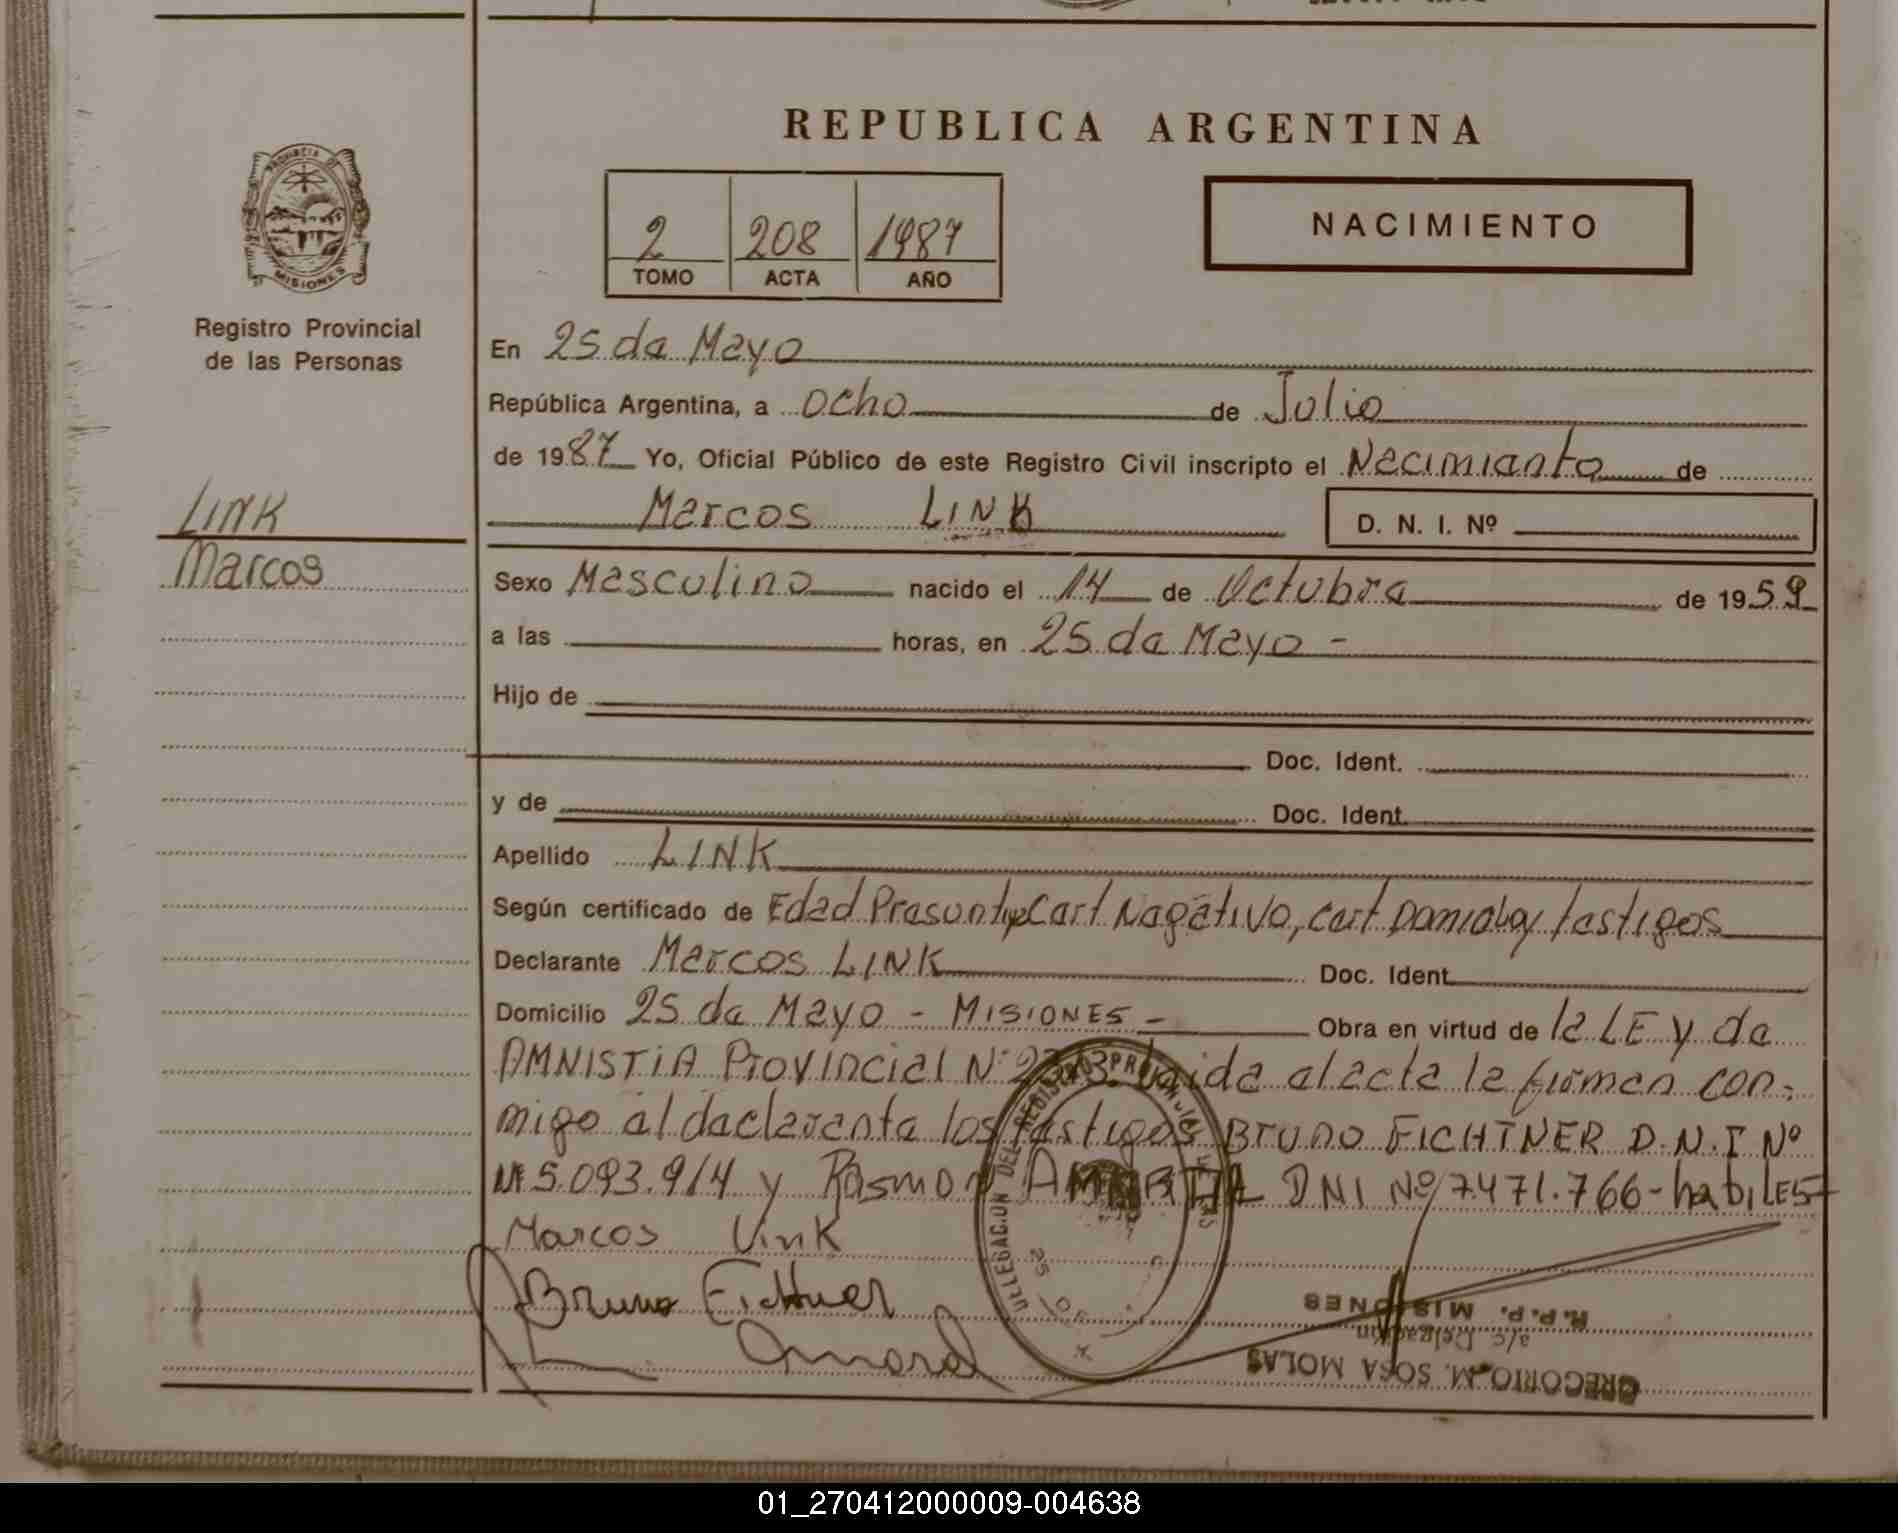 REPUBLICA ARGENTINA
PROVINCIA DE
MISIONES
2 208 1987
TOMO ACTA AÑO
NACIMIENTO
Registro Provincial
de las Personas
LINK
Marcos
En 25 de Mayo
República Argentina, a ocho de Julio
de 1987 Yo, Oficial Público de este Registro Civil inscripto el Nacimiento de
Marcos LINK D. N. I. Nº
Sexo Masculino nacido el 14 de Octubre de 1959
a las horas, en 25 de Mayo -
Hijo de
Doc. Ident.
y de Doc. Ident.
Apellido LINK
Según certificado de Edad Presuntiva Cert Negativo, cert Domicilio y testigos
Declarante Marcos LINK Doc. Ident.
Domicilio 25 de Mayo - MISIONES - Obra en virtud de la LEY de
AMNISTIA Provincial Nº Leida el acta la firman con-
migo el declarante los testigos BRUNO FICHTNER D.N.I Nº
M 5.093.914 y Rasmon DNI Nº 7.471.766 - habiles
Marcos Link
Bruno Fichtner
Amaral
DELEGACION DEL REGISTRO PROVINCIAL
25 DE
R.P.P. MISIONES
a/c Delegación
GREGORIO M. SOSA MOLAS
01_270412000009-004638